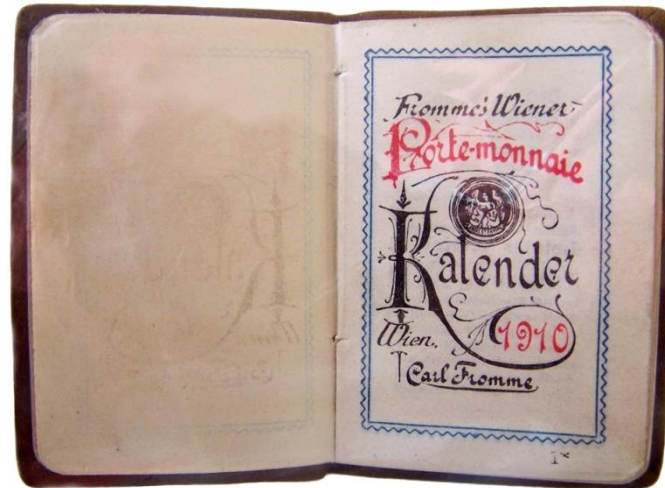 Fromme's Wiener
Porte-monnaie
Kalender
Wien. 1910
Carl Fromme